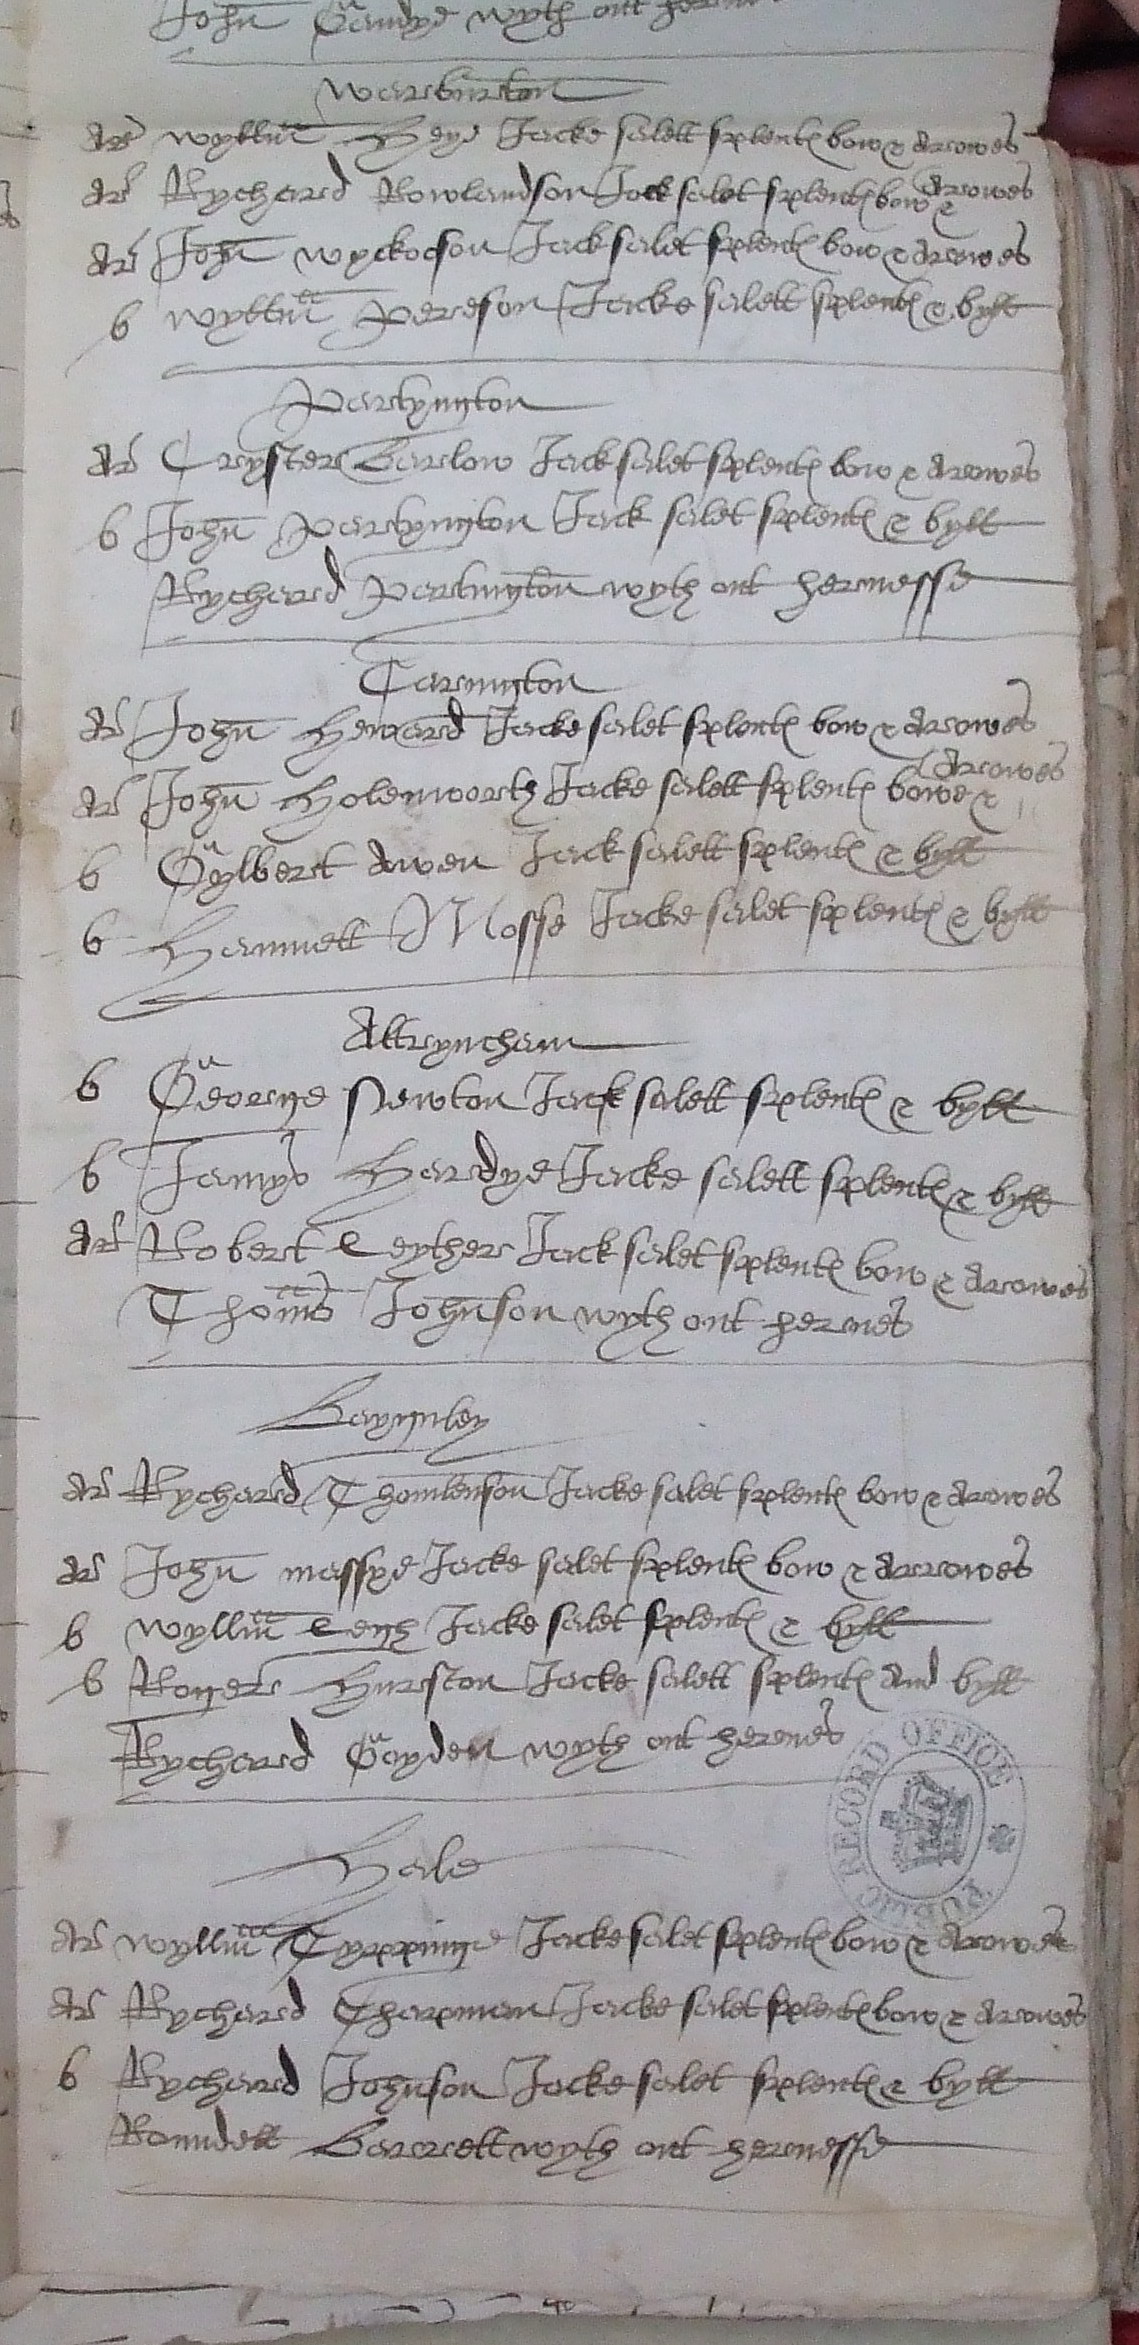 John Gandye wyth out hernes
Warburton
Ar Wyllm Heye Jacke salett splentes bow & arowes
Ar Rychard Rowlandson Jack salet splentes bow & arowes
Ar John Wyckocson Jack salet splentes bow & arowes
b Wyllm Pereson Jacke salett splentes & byll
Partyngton
Ar Cryster Barlow Jack salet splentes bow & arowes
b John Partyngton Jack salet splentes & byll
Rychard Partington wyth out hernesse
Carington
Ar John Heward Jacke salet splentes bow & arowes
Ar John Holenworth Jacke salett splentes bowe & arowes
b Gylbert Awen Jack salett splentes & byll
b Hamnett Mosse Jacke salet splentes & byll
Altryncham
b Georges Newton Jack salett splentes & byll
b Jamys Hardye Jacke salett splentes & byll
Ar Robert Leyther Jack salet splentes bow & arowes
Thoms Johnson wyth out hernes
Bagyley
Ar Rychard Thomlenson Jacke salet splentes bow & arowes
Ar John Massye Jacke salet splentes bow & arrowes
b Wyllm Legh Jacke salet splentes & byll
b Roger Hurston Jacke salett splentes and byll
Rychard Goyden wyth out hernes
Hale
Ar Wyllm Typpinge Jacke salet splentes bow & arowes
Ar Rychard Chapman Jacke salet splentes bow & arowes
b Rychard Johnson Jacke salet splentes & byll
Rondell Barrett wyth out hernesse
PUBLIC RECORD OFFICE